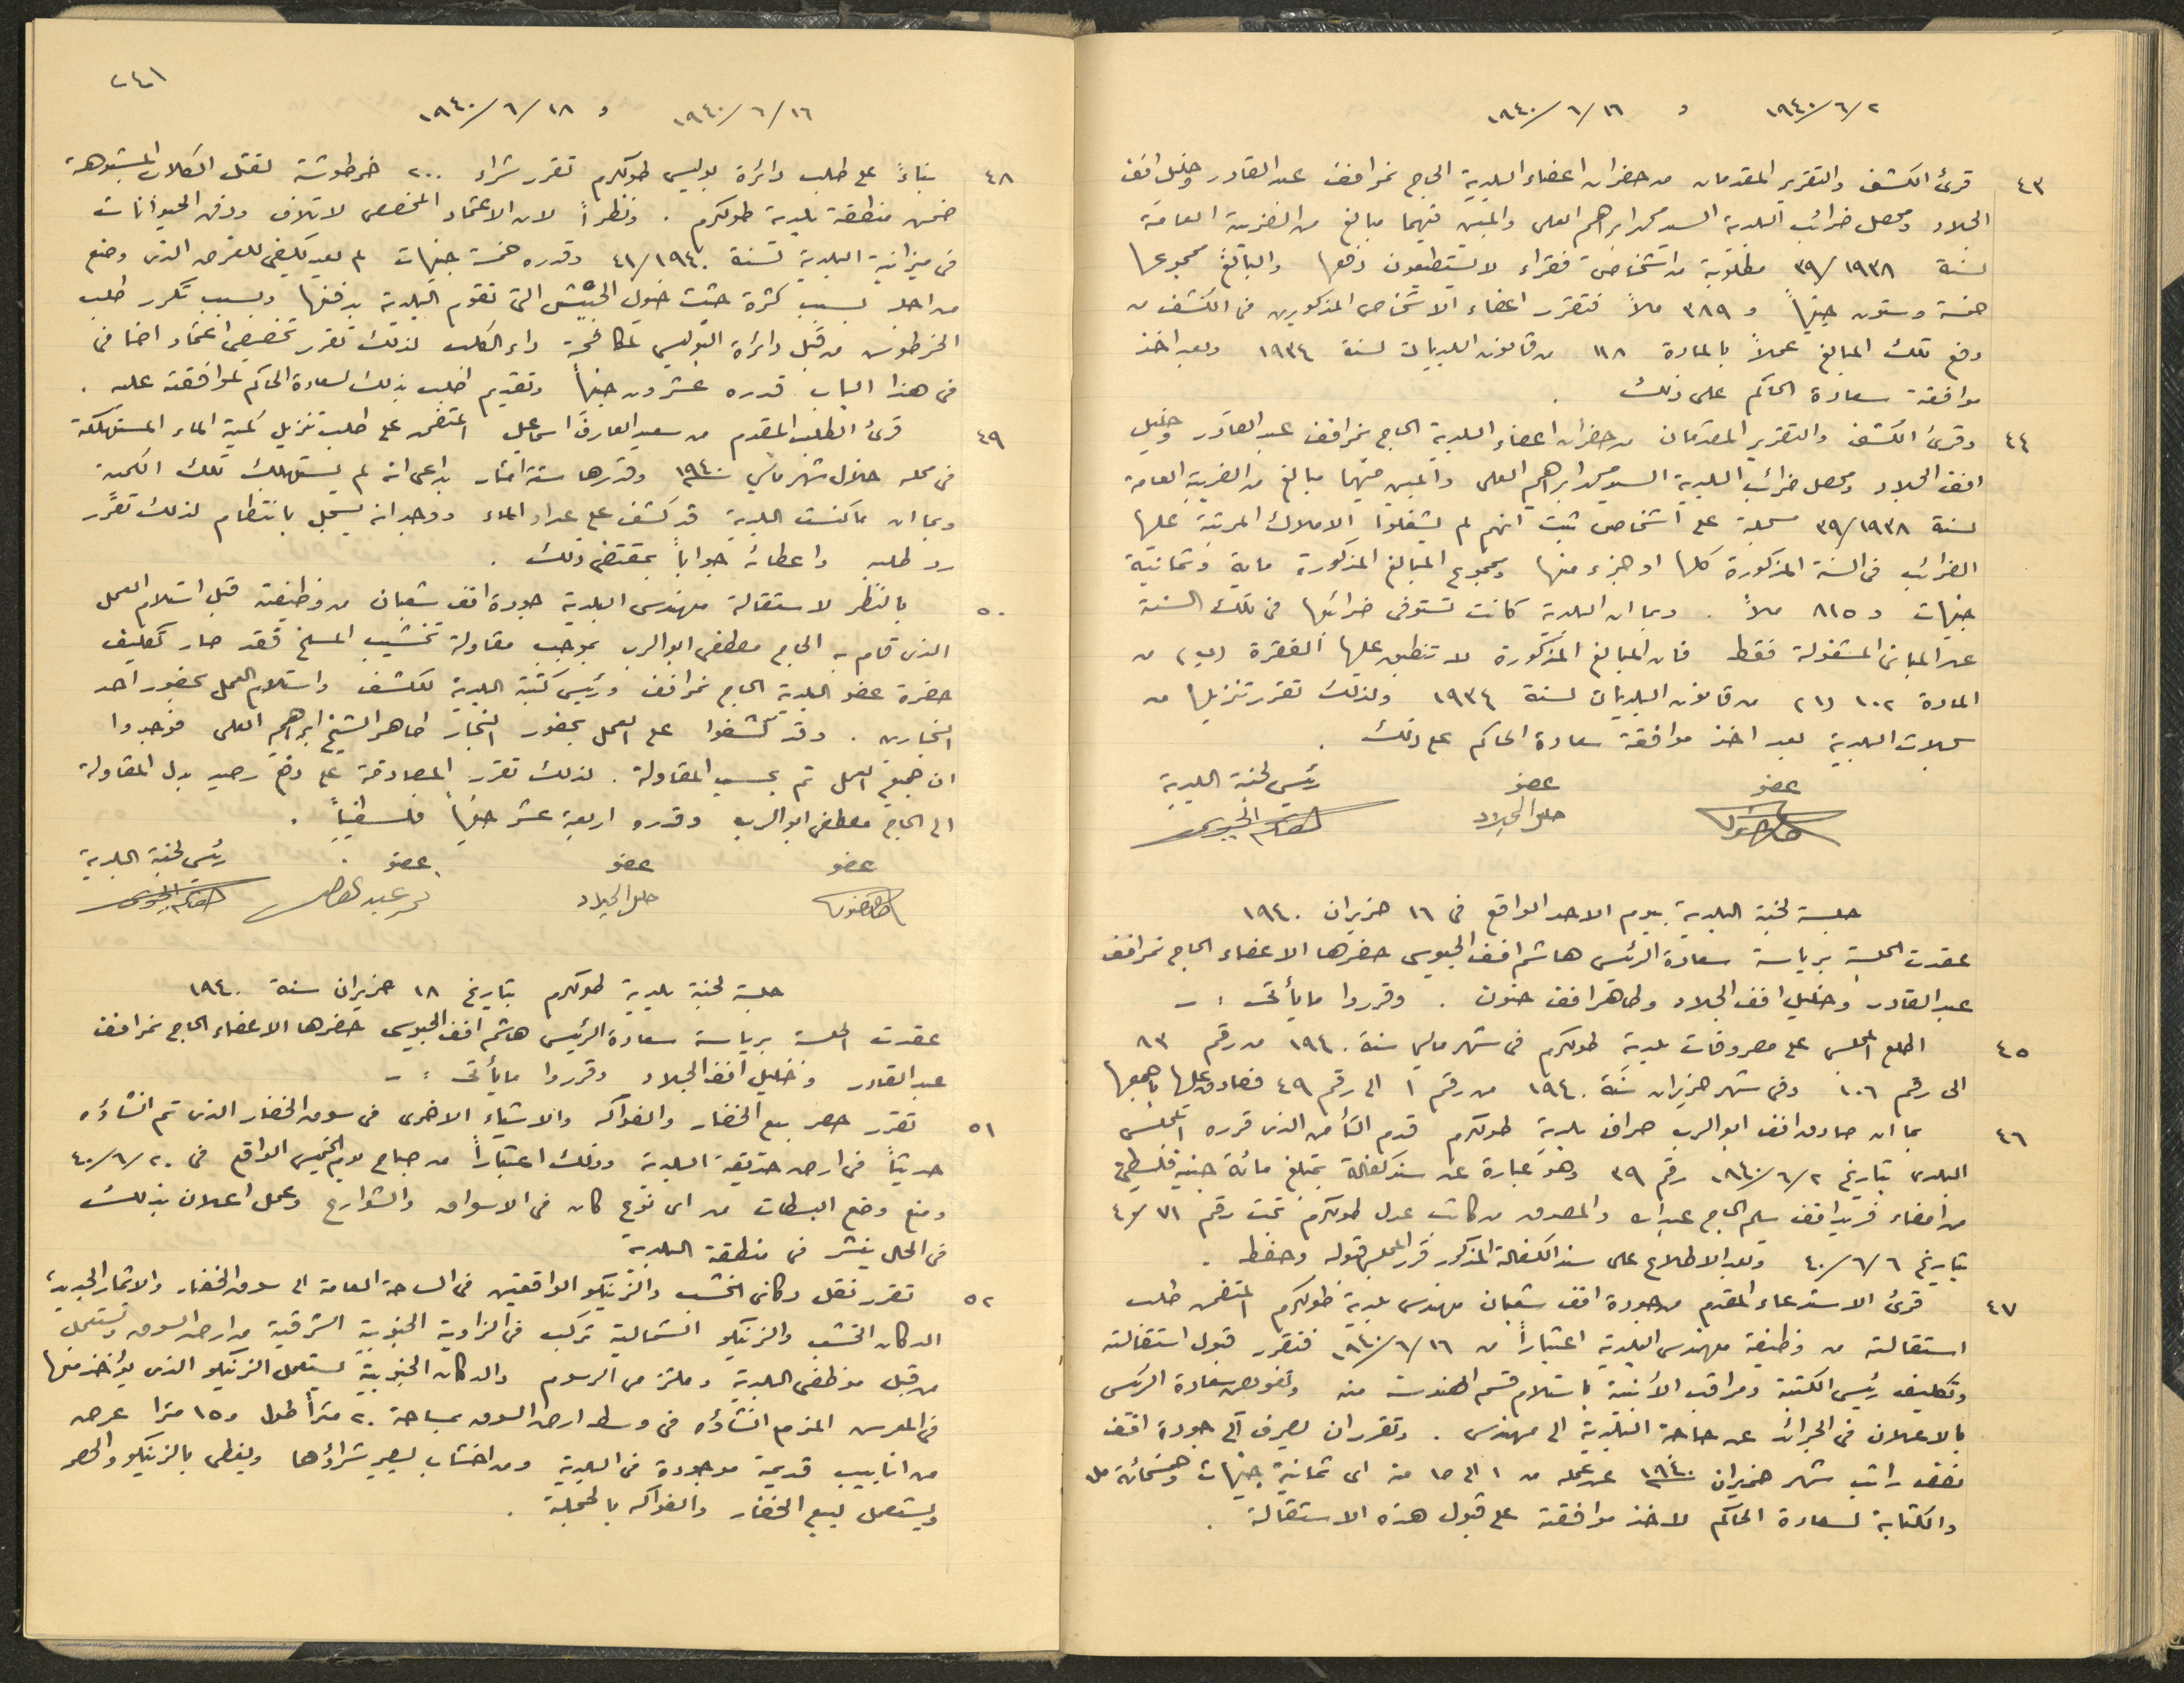 ١٩٤٠/٦/٢ و ١٩٤٠/٦/١٦
٤٣ قرئ الكشف والتقرير المقدمان من حضران اعضاء البلدية الحاج نمر افندي عبد القادر وخليل افندي
الجلاد ومحصل ضرائب البلدية السيد محمد ابراهيم العلي والمبين فيهما مبالغ من الضريبة العامة
لسنة ٣٩/١٩٣٨ مطلوبة من اشخاص فقراء لا يستطيعون دفعها والبالغ مجموعها
خمسة وستون جنيهاً و ٣٨٩ ملاً فتقرر اعفاء الاشخاص المذكورين في الكشف من
دفع تلك المبالغ عملاً بالمادة ١١٨ من قانون البلديات لسنة ١٩٣٤ وبعد اخذ
موافقة سعادة الحاكم على ذلك .
٤٤ وقرئ الكشف والتقرير المقدمان من حضران اعضاء البلدية الحاج نمر افندي عبد القادر وخليل
افندي الجلاد ومحصل ضرائب البلدية السيد محمد ابراهيم العلي والمبين فيهما مبالغ من الضريبة العامة
لسنة ٣٩/١٩٣٨ مسجلة على اشخاص ثبت انهم لم يشغلوا الاملاك المرتبة عليها
الضرائب في السنة المذكورة كلها او جزء منها ومجموع المبالغ المذكورة ماية وثمانية
جنيهات و ٨١٥ ملاً . وبما ان البلدية كانت تستوفي ضرائبها في تلك السنة
عن المباني المشغولة فقط فان المبالغ المذكورة لا تنطبق عليها الفقرة (ب) من
المادة ١٠٢ (١) من قانون البلديات لسنة ١٩٣٤ ولذلك تقرر تنزيلها من
سجلات البلدية بعد اخذ موافقة سعادة الحاكم على ذلك .
عضو عضو رئيس لجنة البلدية
خليل الجلاد هاشم الجيوسي
جلسة لجنة البلدية بيوم الاحد الواقع في ١٦ حزيران ١٩٤٠
عقدت الجلسة برياسة سعادة الرئيس هاشم افندي الجيوسي حضرها الاعضاء الحاج نمر افندي
عبد القادر وخليل افندي الجلاد وطاهر افندي حنون . وقرروا ما يأتي : -
٤٥ اطلع المجلس على مصروفات بلدية طولكرم في شهر مايس سنة ١٩٤٠ من رقم ٨٣
الى رقم ١٠٦ وفي شهر حزيران سنة ١٩٤٠ من رقم ١ الى رقم ٤٩ فصادق عليها باجمعها
٤٦ بما ان صادق افندي ابو الرب صراف بلدية طولكرم قدم التأمين الذي قرره المجلس
البلدي بتاريخ ١٩٤٠/٦/٢ رقم ٣٩ وهو عبارة عن سند كفالة بمبلغ مائة جنيه فلسطيني
من امضاء فريد افندي سليم الحاج عبدالله والمصدق من كاتب عدل طولكرم تحت رقم ٤٠/٧١
بتاريخ ٤٠/٦/٦ وبعد الاطلاع على سند الكفالة المذكور قرر المجلس قبوله وحفظه .
٤٧ قرئ الاستدعاء المقدم من جودة افندي شعبان مهندس بلدية طولكرم المتضمن طلب
استقالته من وظيفة مهندس البلدية اعتباراً من ١٩٤٠/٦/١٦ فتقرر قبول استقالته
وتكليف رئيس الكتبة ومراقب الأبنية باستلام قسم الهندسة منه وتفويض سعادة الرئيس
بالاعلان في الجرائد عن حاجة البلدية الى مهندس . وتقرر ان يصرف الى جودة افندي
نصف راتب شهر حزيران ١٩٤٠ عن عمله من ١ الى ١٥ منه اي ثمانية جنيهات وخمسمائة مل
والكتابة لسعادة الحاكم لاخذ موافقته على قبول هذه الاستقالة .
١٩٤٠/٦/١٦ و ١٩٤٠/٦/١٨
٤٨ بناءً على طلب دائرة بوليس طولكرم تقرر شراء ٢٠٠ خرطوشة لقتل الكلاب المشبوهة
ضمن منطقة بلدية طولكرم . ونظراً لان الاعتماد المخصص لاتلاف ودفن الحيوانات
في ميزانية البلدية لسنة ٤١/١٩٤٠ وقدره خمسة جنيهات لم يعد يكفي للغرض الذي وضع
من اجله بسبب كثرة جثث خيول الجيش التي تقوم البلدية بدفنها وبسبب تكرر طلب
الخرطوش من قبل دائرة البوليس لمكافحة داء الكلب لذلك تقرر تخصيص اعتماد اضافي
في هذا الباب قدره عشرون جنيهاً وتقديم الطلب بذلك لسعادة الحاكم لموافقته عليه .
٤٩ قرئ الطلب المقدم من سعيد العارف اسماعيل المتضمن على طلب تنزيل كمية الماء المستهلكة
في محله خلال شهر مايس ١٩٤٠ وقدرها ستة امتار بداعي انه لم يستهلك تلك الكمية
وبما ان ماكنست البلدية قد كشف على عداد الماء ووجد انه يسجل بانتظام لذلك تقرر
رد طلبه واعطائه جواباً بمقتضى ذلك .
٥٠ بالنظر لاستقالة مهندس البلدية جودة افندي شعبان من وظيفته قبل استلام العمل
الذي قام به الحاج مصطفى ابو الرب بموجب مقاولة تخشيب المسلخ فقد صار تكليف
حضرة عضو البلدية الحاج نمر افندي ورئيس كتبة البلدية للكشف واستلام العمل بحضور احد
النجارين . وقد كشفوا على العمل بحضور النجار طاهر الشيخ ابراهيم العلي فوجدوا
ان جميع العمل تم بحسب المقاولة . لذلك تقرر المصادقة على دفع رصيد بدل المقاولة
الى الحاج مصطفى ابو الرب وقدره اربعة عشر جنيهاً فلسطينياً .
عضو عضو عضو رئيس لجنة البلدية
خليل الجلاد نمر عبد القادر هاشم الجيوسي
جلسة لجنة بلدية طولكرم بتاريخ ١٨ حزيران سنة ١٩٤٠
عقدت الجلسة برياسة سعادة الرئيس هاشم افندي الجيوسي حضرها الاعضاء الحاج نمر افندي
عبد القادر وخليل افندي الجلاد وقرروا ما يأتي : -
٥١ تقرر حصر بيع الخضار والفواكه والاشياء الاخرى في سوق الخضار الذي تم انشاؤه
حديثاً في ارض حديقة البلدية وذلك اعتباراً من صباح يوم الخميس الواقع في ٤٠/٦/٢٠
ومنع وضع البسطات من اي نوع كان في الاسواق والشوارع وعمل اعلان بذلك
في الحال ينشر في منطقة البلدية
٥٢ تقرر نقل دكاني الخشب والزينكو الواقعتين في الساحة العامة الى سوق الخضار والاثمار الجديد،
الدكان الخشب والزينكو الشمالية تركب في الزاوية الجنوبية الشرقية من ارض السوق وتستعمل
من قبل موظفي البلدية وملتزمي الرسوم والدكان الجنوبية يستعمل الزينكو الذي يؤخذ منها
في المعرس المزمع انشاؤه في وسط ارض السوق بمساحة ٢٠ متراً طول و ١٥ مترا عرض
من انابيب قديمة موجودة في البلدية ومن اخشاب يصير شراؤها ويغطى بالزينكو والحصر
ويستعمل لبيع الخضار والفواكه بالجملة .